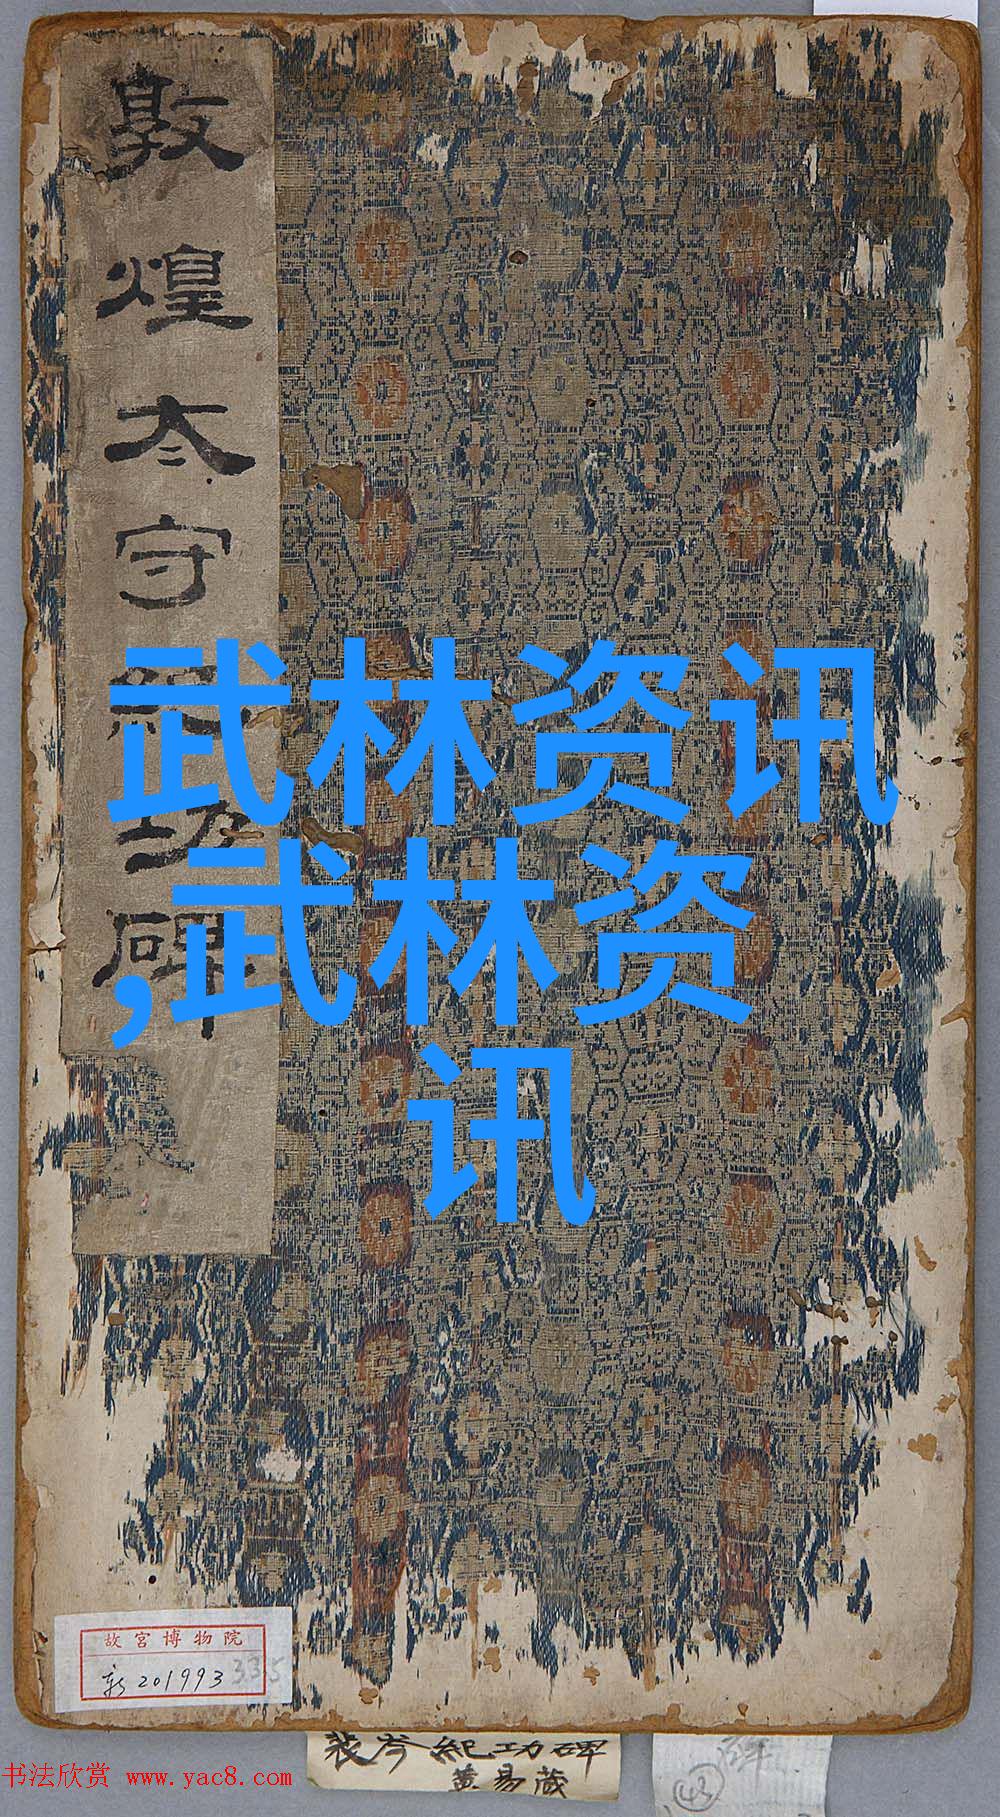 敦煌太守
碑
武林资讯
,武林资
讯
故宫博物院
新201993
335
裴岑紀功碑
黄易藏
43
书法欣赏 www.yac8.com